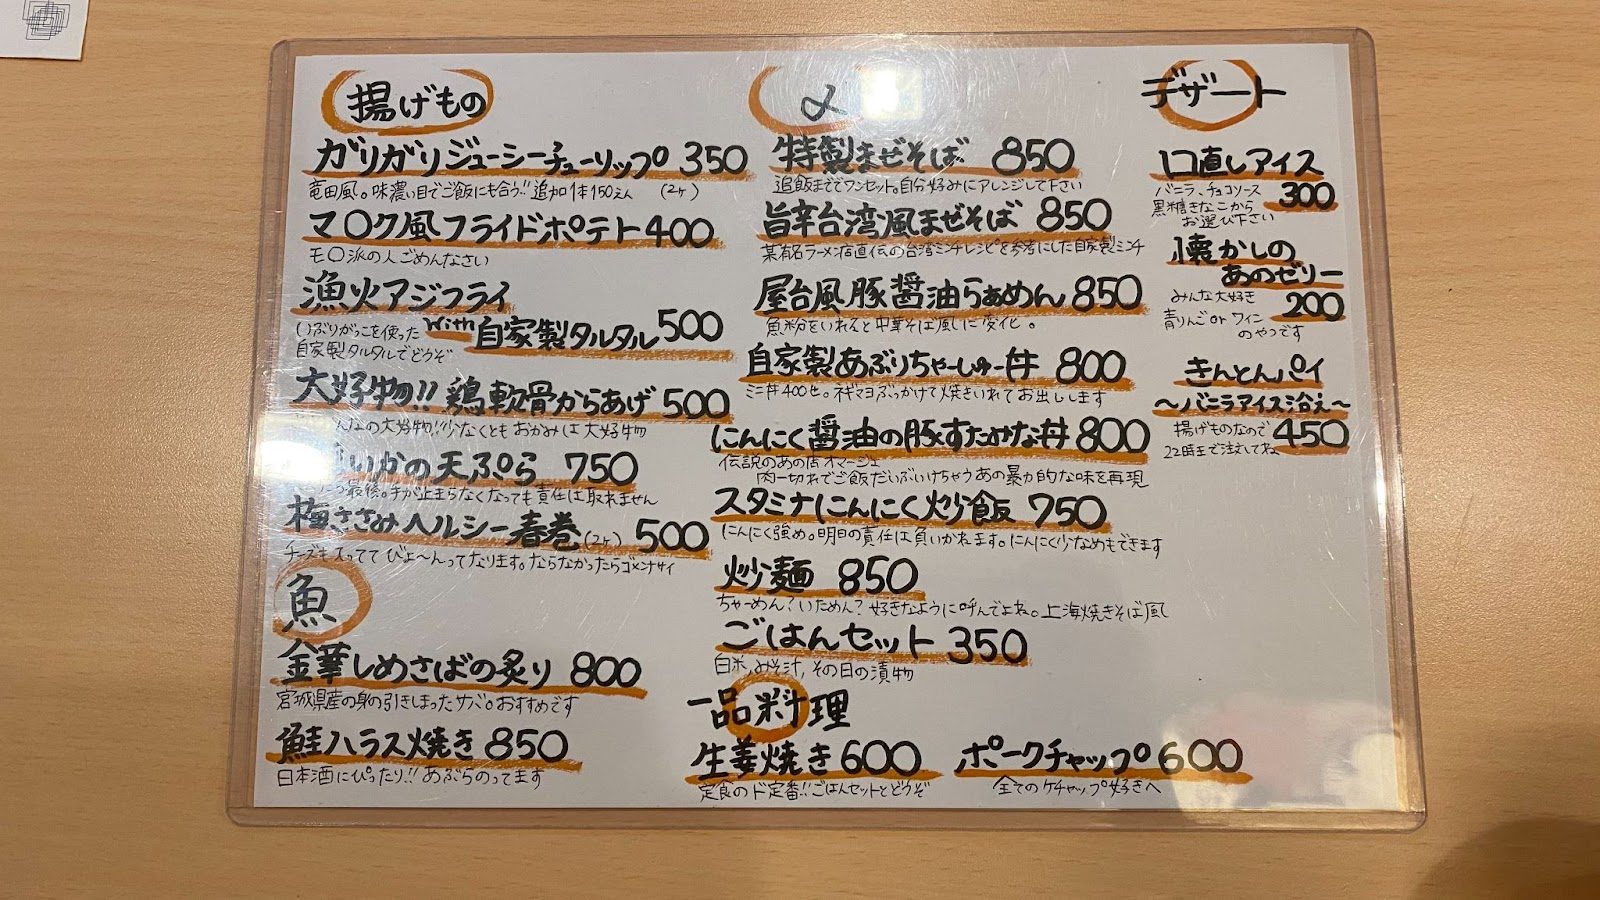 揚げもの
ガリガリジューシーチューリップ 350
竜田風。味濃い目でご飯にも合う!! 追加1本150えん (2ヶ)
マ〇ク風フライドポテト 400
モ〇派の人ごめんなさい
漁火アジフライ
with 自家製タルタル 500
いぶりがっこを使った
自家製タルタルでどうぞ
大好物!! 鶏軟骨からあげ 500
んなの大好物!! 少なくともおかみは大好物
いかの天ぷら 750
最後。手が止まらなくなっても責任は取れません
梅ささみヘルシー春巻(2ヶ) 500
チーズも入ってて びよ〜んってなります。ならなかったらゴメンナサイ
魚
金華しめさばの炙り 800
宮城県産の身の引きしまったサバ。おすすめです
鮭ハラス焼き 850
日本酒にぴったり!! あぶらのってます
〆
特製まぜそば 850
追飯までワンセット。自分好みにアレンジして下さい
旨辛台湾風まぜそば 850
某有名ラーメン店直伝の台湾ミンチレシピを参考にした自家製ミンチ
屋台風豚醤油らぁめん 850
魚粉をいれると中華そば風に変化。
自家製あぶりちゃーしゅー丼 800
ミニ丼400も。ネギマヨぶっかけて焼きいれてお出しします
にんにく醤油の豚すたみな丼 800
伝説のあの店オマージュ
肉一切れでご飯だいぶいけちゃうあの暴力的な味を再現
スタミナにんにく炒飯 750
にんにく強め。明日の責任は負いかねます。にんにく少なめもできます
炒麺 850
ちゃーめん?いため?好きなように呼んでよね。上海焼きそば風
ごはんセット 350
白米,みそ汁,その日の漬物
一品料理
生姜焼き 600
定食のド定番!! ごはんセットとどうぞ
ポークチャップ 600
全てのケチャップ好きへ
デザート
口直しアイス
300
バニラ、チョコソース
黒糖きなこから
お選び下さい
懐かしの
あのゼリー
200
みんな大好き
青りんご or ワイン
のやつです
きんとんパイ
〜バニラアイス添え〜
450
揚げものなので
22時まで注文してね